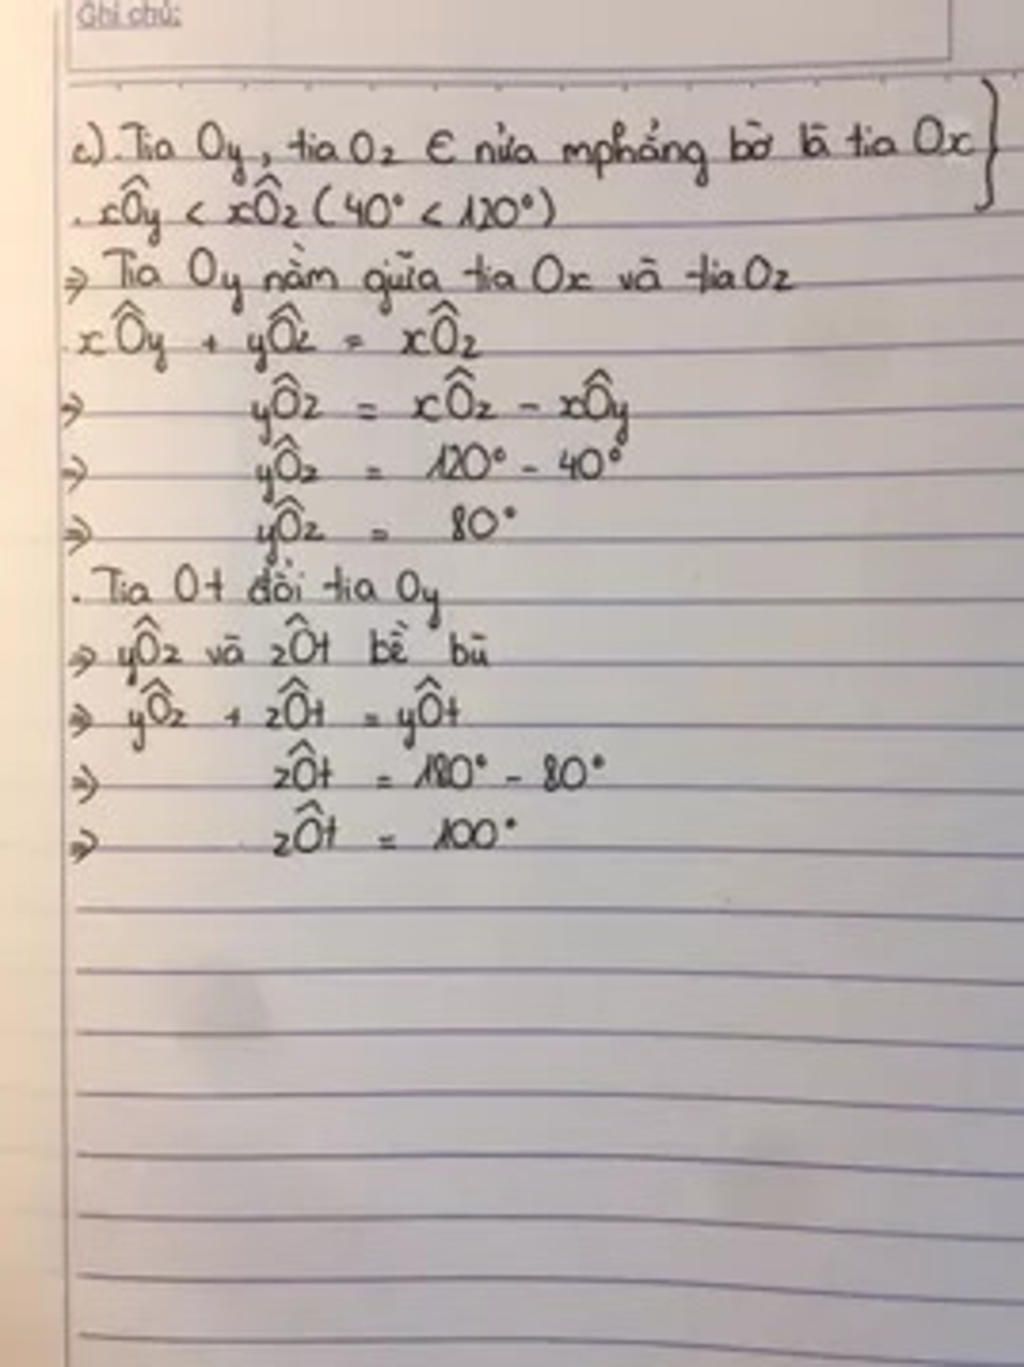 Ghi chú:
c). Tia Oy, tia Oz ∈ nửa mphẳng bờ là tia Ox }
. xÔy < xÔz (40° < 120°)
=> Tia Oy nằm giữa tia Ox và tia Oz
xÔy + yÔz = xÔz
=> yÔz = xÔz - xÔy
=> yÔz = 120° - 40°
=> yÔz = 80°
. Tia Ot đối tia Oy
=> yÔz và zÔt bề bù
=> yÔz + zÔt = yÔt
=> zÔt = 180° - 80°
=> zÔt = 100°